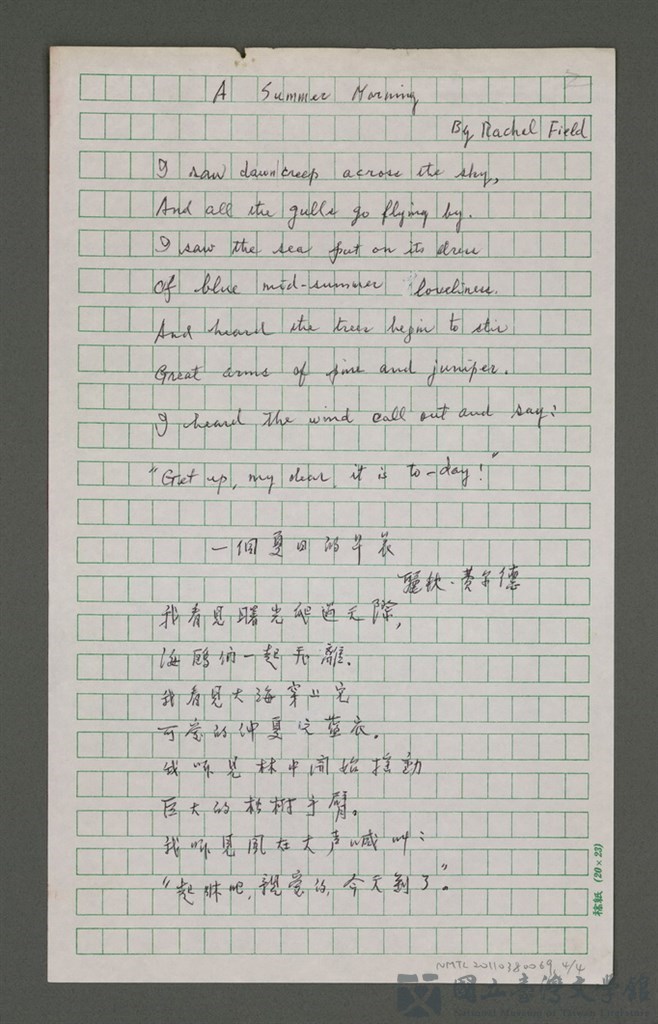 2
A Summer Morning
By Rachel Field
I saw dawn creep across the sky,
And all the gulls go flying by.
I saw the sea put on its dress
Of blue mid-summer loveliness.
And heard the trees begin to stir
Great arms of pine and juniper.
I heard the wind call out and say:
"Get up, my dear, it is to-day!"
一個夏日的早晨
麗秋·費尔德
我看見曙光爬過天際,
海鷗俩一起飛離.
我看見大海穿上它
可愛的仲夏它藍衣.
我听見林中開始搖動
巨大的松樹手臂。
我听見風在大声喊叫:
"起床吧,親愛的,今天到了"。
稿紙 (20×23)
NMTL20110380069, 4/4
國立臺灣文學館
National Museum of Taiwan Literature